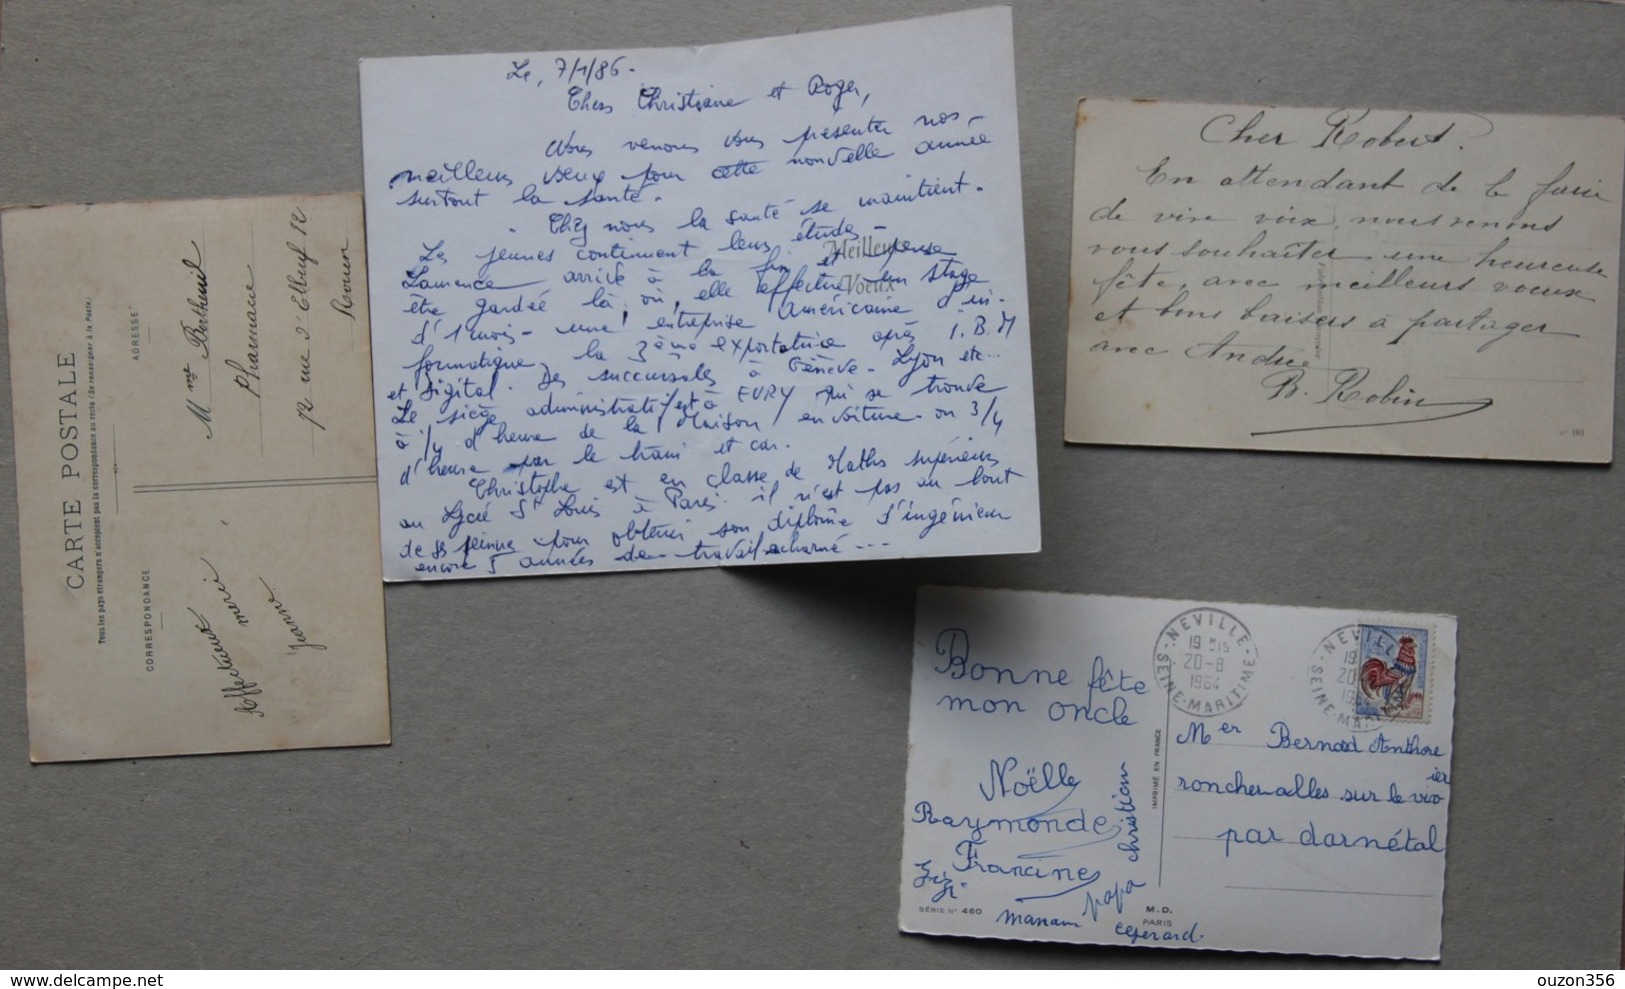 CARTE POSTALE
Tous les pays étrangers n'acceptent pas la correspondance au recto (Se renseigner à la Poste).
CORRESPONDANCE
ADRESSE
Mme Bertheuil
Pharmacie
12 rue d'Elbeuf 12
Rouen
Affectueux
merci
Jeanne
Le, 7/1/86.
Chers Christiane et Roger,
Nous venons vous présenter nos
meilleurs vœux pour cette nouvelle année
surtout la santé.
Chez nous la santé se maintient.
Les jeunes continuent leurs études.
Laurence arrive à la fin et pense
être gardée là où elle effectue un stage
d'1 mois - une entreprise Américaine d'in-
formatique, la 3ème exportatrice après I.B.M
et Digital. Des succursales à Genève - Lyon etc...
Le siège administratif est à EVRY qui se trouve
à 1/4 d'heure de la Maison en voiture - ou 3/4
d'heure par le train et car.
Christophe est en classe de Maths supérieures
au Lycée St Louis à Paris. il n'est pas au bout
de ses peines pour obtenir son diplôme d'ingénieur
encore 5 années de travail acharné...
Meilleurs
Vœux
Cher Robert.
En attendant de le faire
de vive voix, nous venons
vous souhaiter une heureuse
fête, avec meilleurs vœux
et bons baisers à partager
avec Andrée
B. Robin
N° 101
Bonne fête
mon oncle
Noëlle
Raymonde
Francine
christian
Gigi
maman
papa
Gérard.
SÉRIE N° 460
M.D.
PARIS
IMPRIMÉ EN FRANCE
NEVILLE
19 H 15
20-8
1964
SEINE-MARITIME
NEVILLE
19
20
19
SEINE-MARITIME
Mer Bernard Anthore
ier
roncherolles sur le vivo
par darnétal
ouzon356